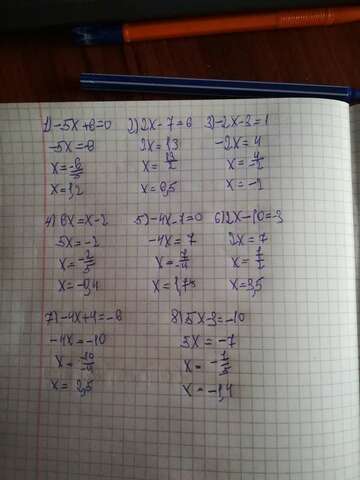 1) -5x+6=0 2) 2x-7=6 3) -2x-3=1
-5x=-6 2x=13 -2x=4
x=-6/-5 x=13/2 x=4/-2
x=1,2 x=6,5 x=-2
4) 6x=x-2 5) -4x-7=0 6) 2x-10=-3
5x=-2 -4x=7 2x=7
x=-2/5 x=7/-4 x=7/2
x=-0,4 x=1,75 x=3,5
7) -4x+4=-6 8) 5x-3=-10
-4x=-10 5x=-7
x=-10/-4 x=-7/5
x=2,5 x=-1,4